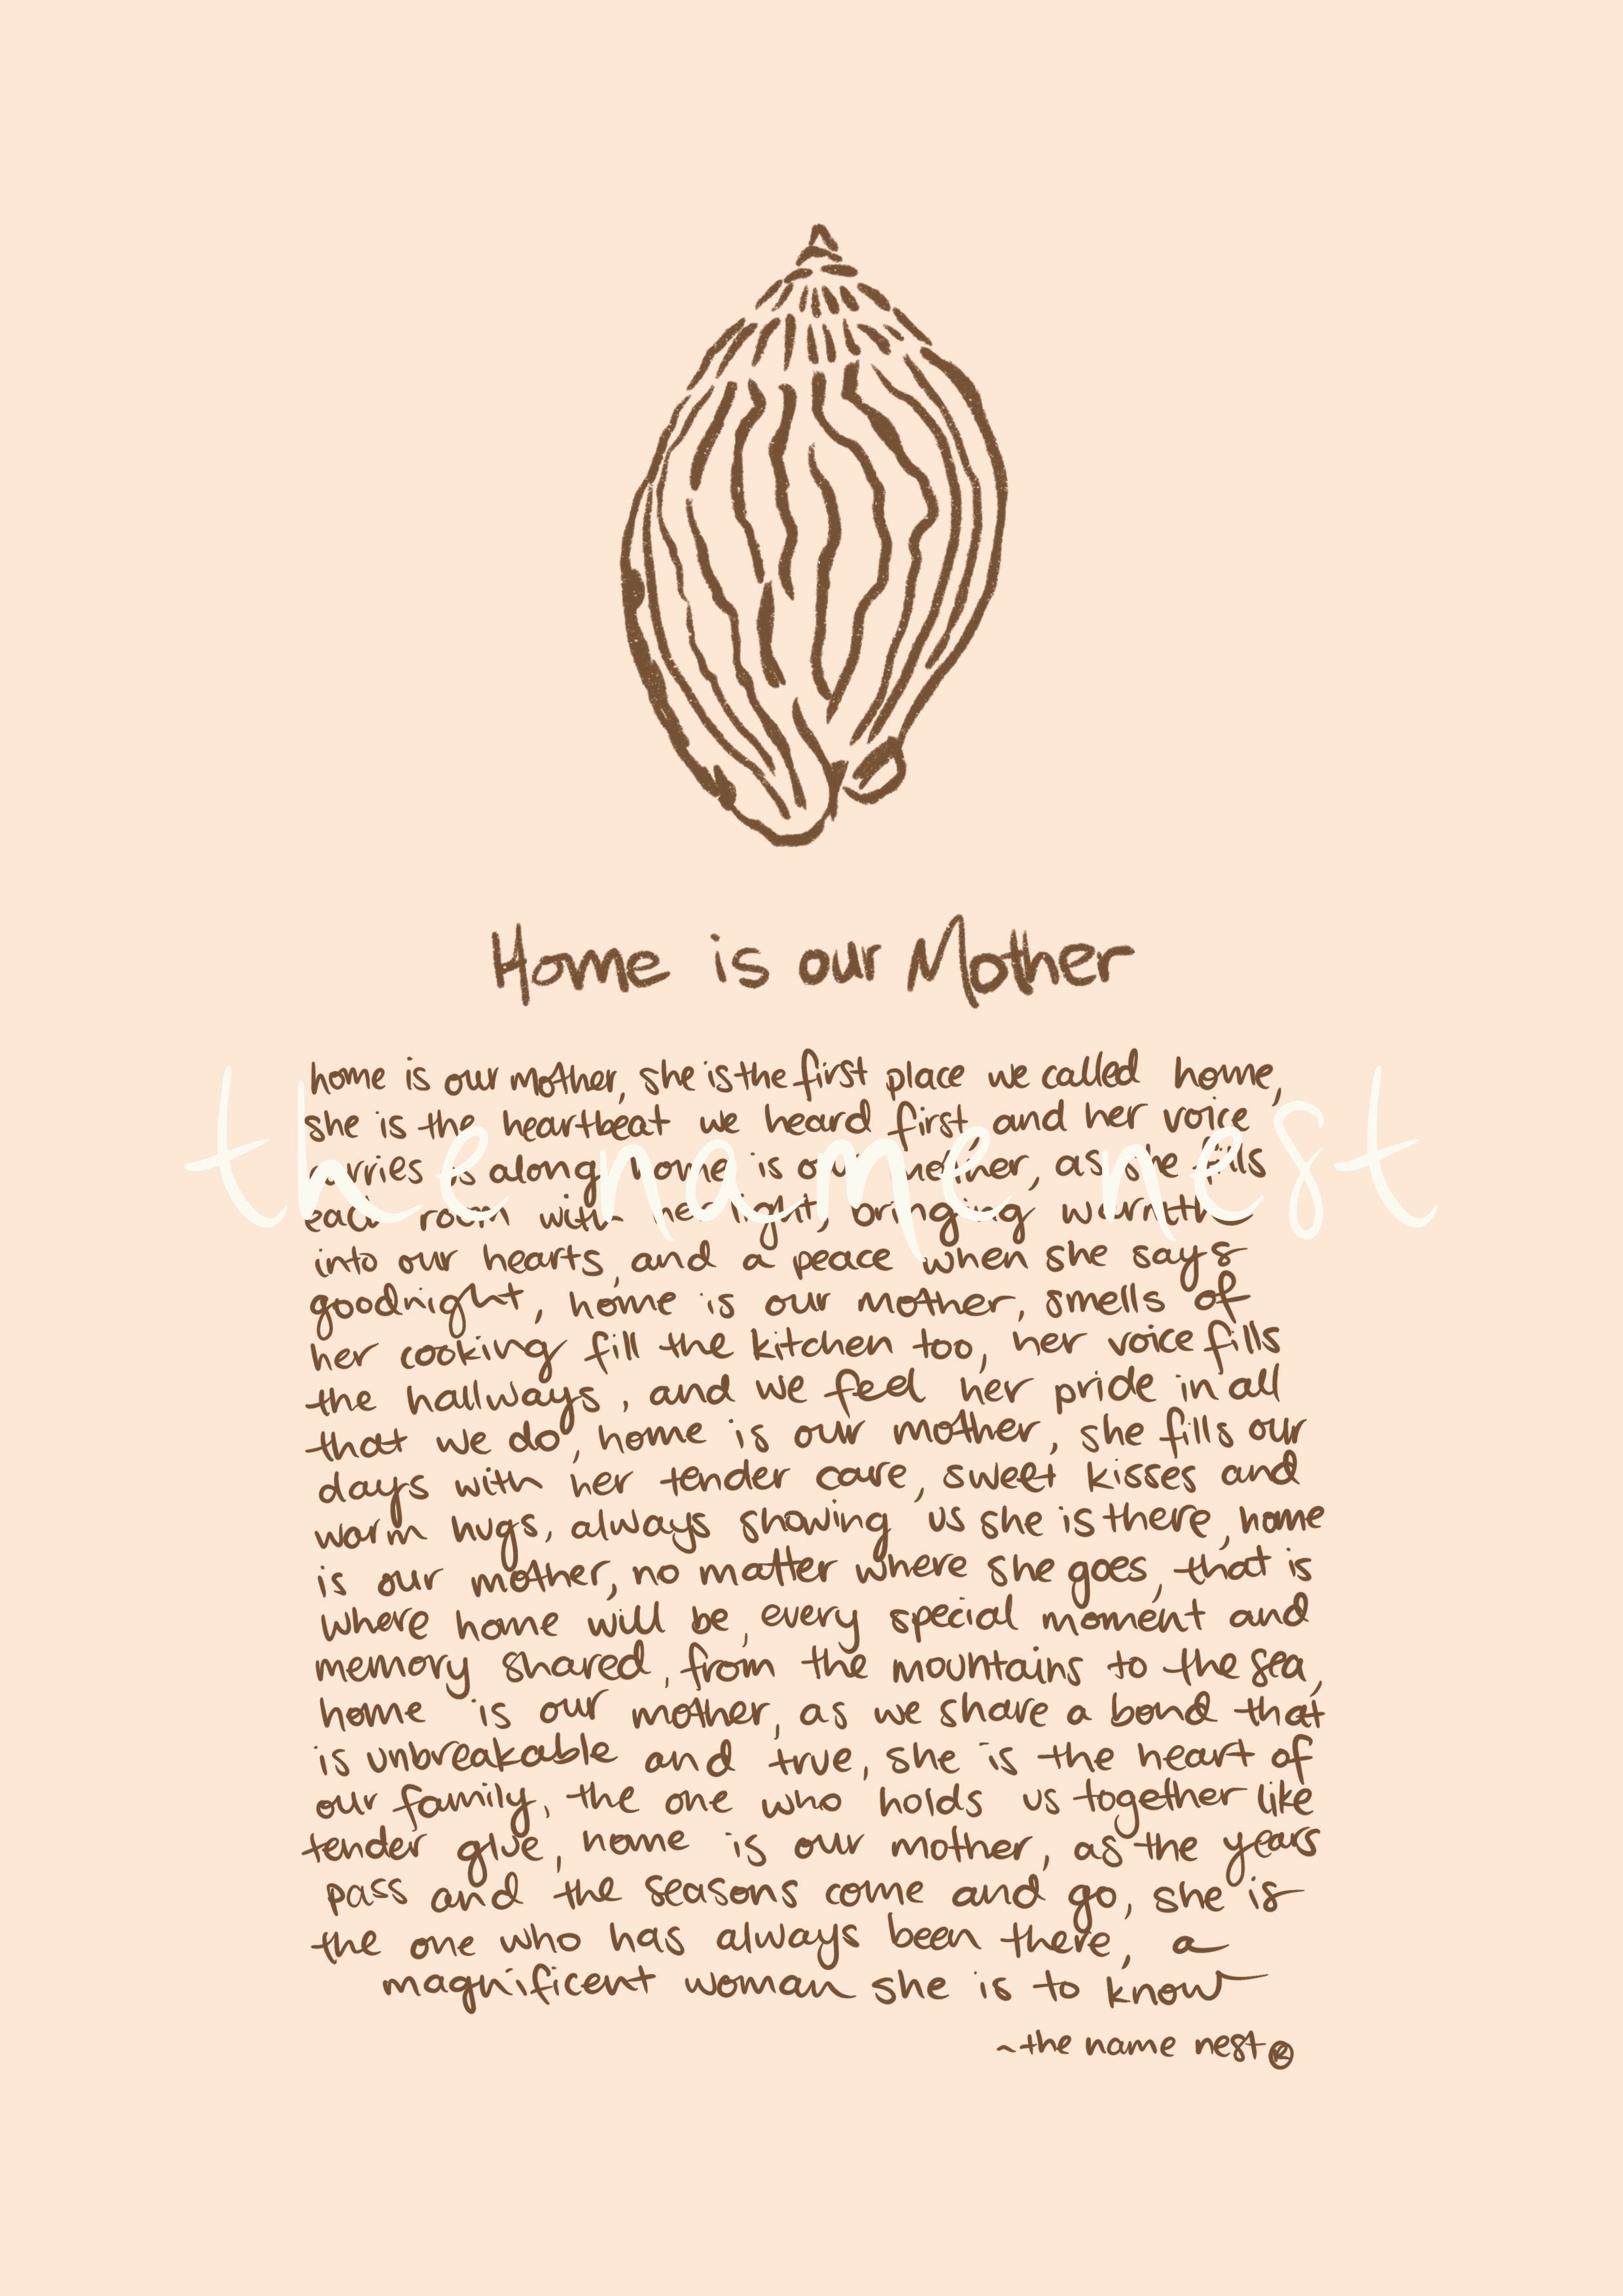 Home is our Mother
home is our mother, she is the first place we called home,
she is the heartbeat we heard first, and her voice
carries us along, home is our mother, as she fills
each room with her light, bringing warmth
into our hearts, and a peace when she says
goodnight, home is our mother, smells of
her cooking fill the kitchen too, her voice fills
the hallways, and we feel her pride in all
that we do, home is our mother, she fills our
days with her tender care, sweet kisses and
warm hugs, always showing us she is there, home
is our mother, no matter where she goes, that is
where home will be, every special moment and
memory shared, from the mountains to the sea,
home is our mother, as we share a bond that
is unbreakable and true, she is the heart of
our family, the one who holds us together like
tender glue, home is our mother, as the years
pass and the seasons come and go, she is
the one who has always been there, a
magnificent woman she is to know
~the name nest®
the name nest